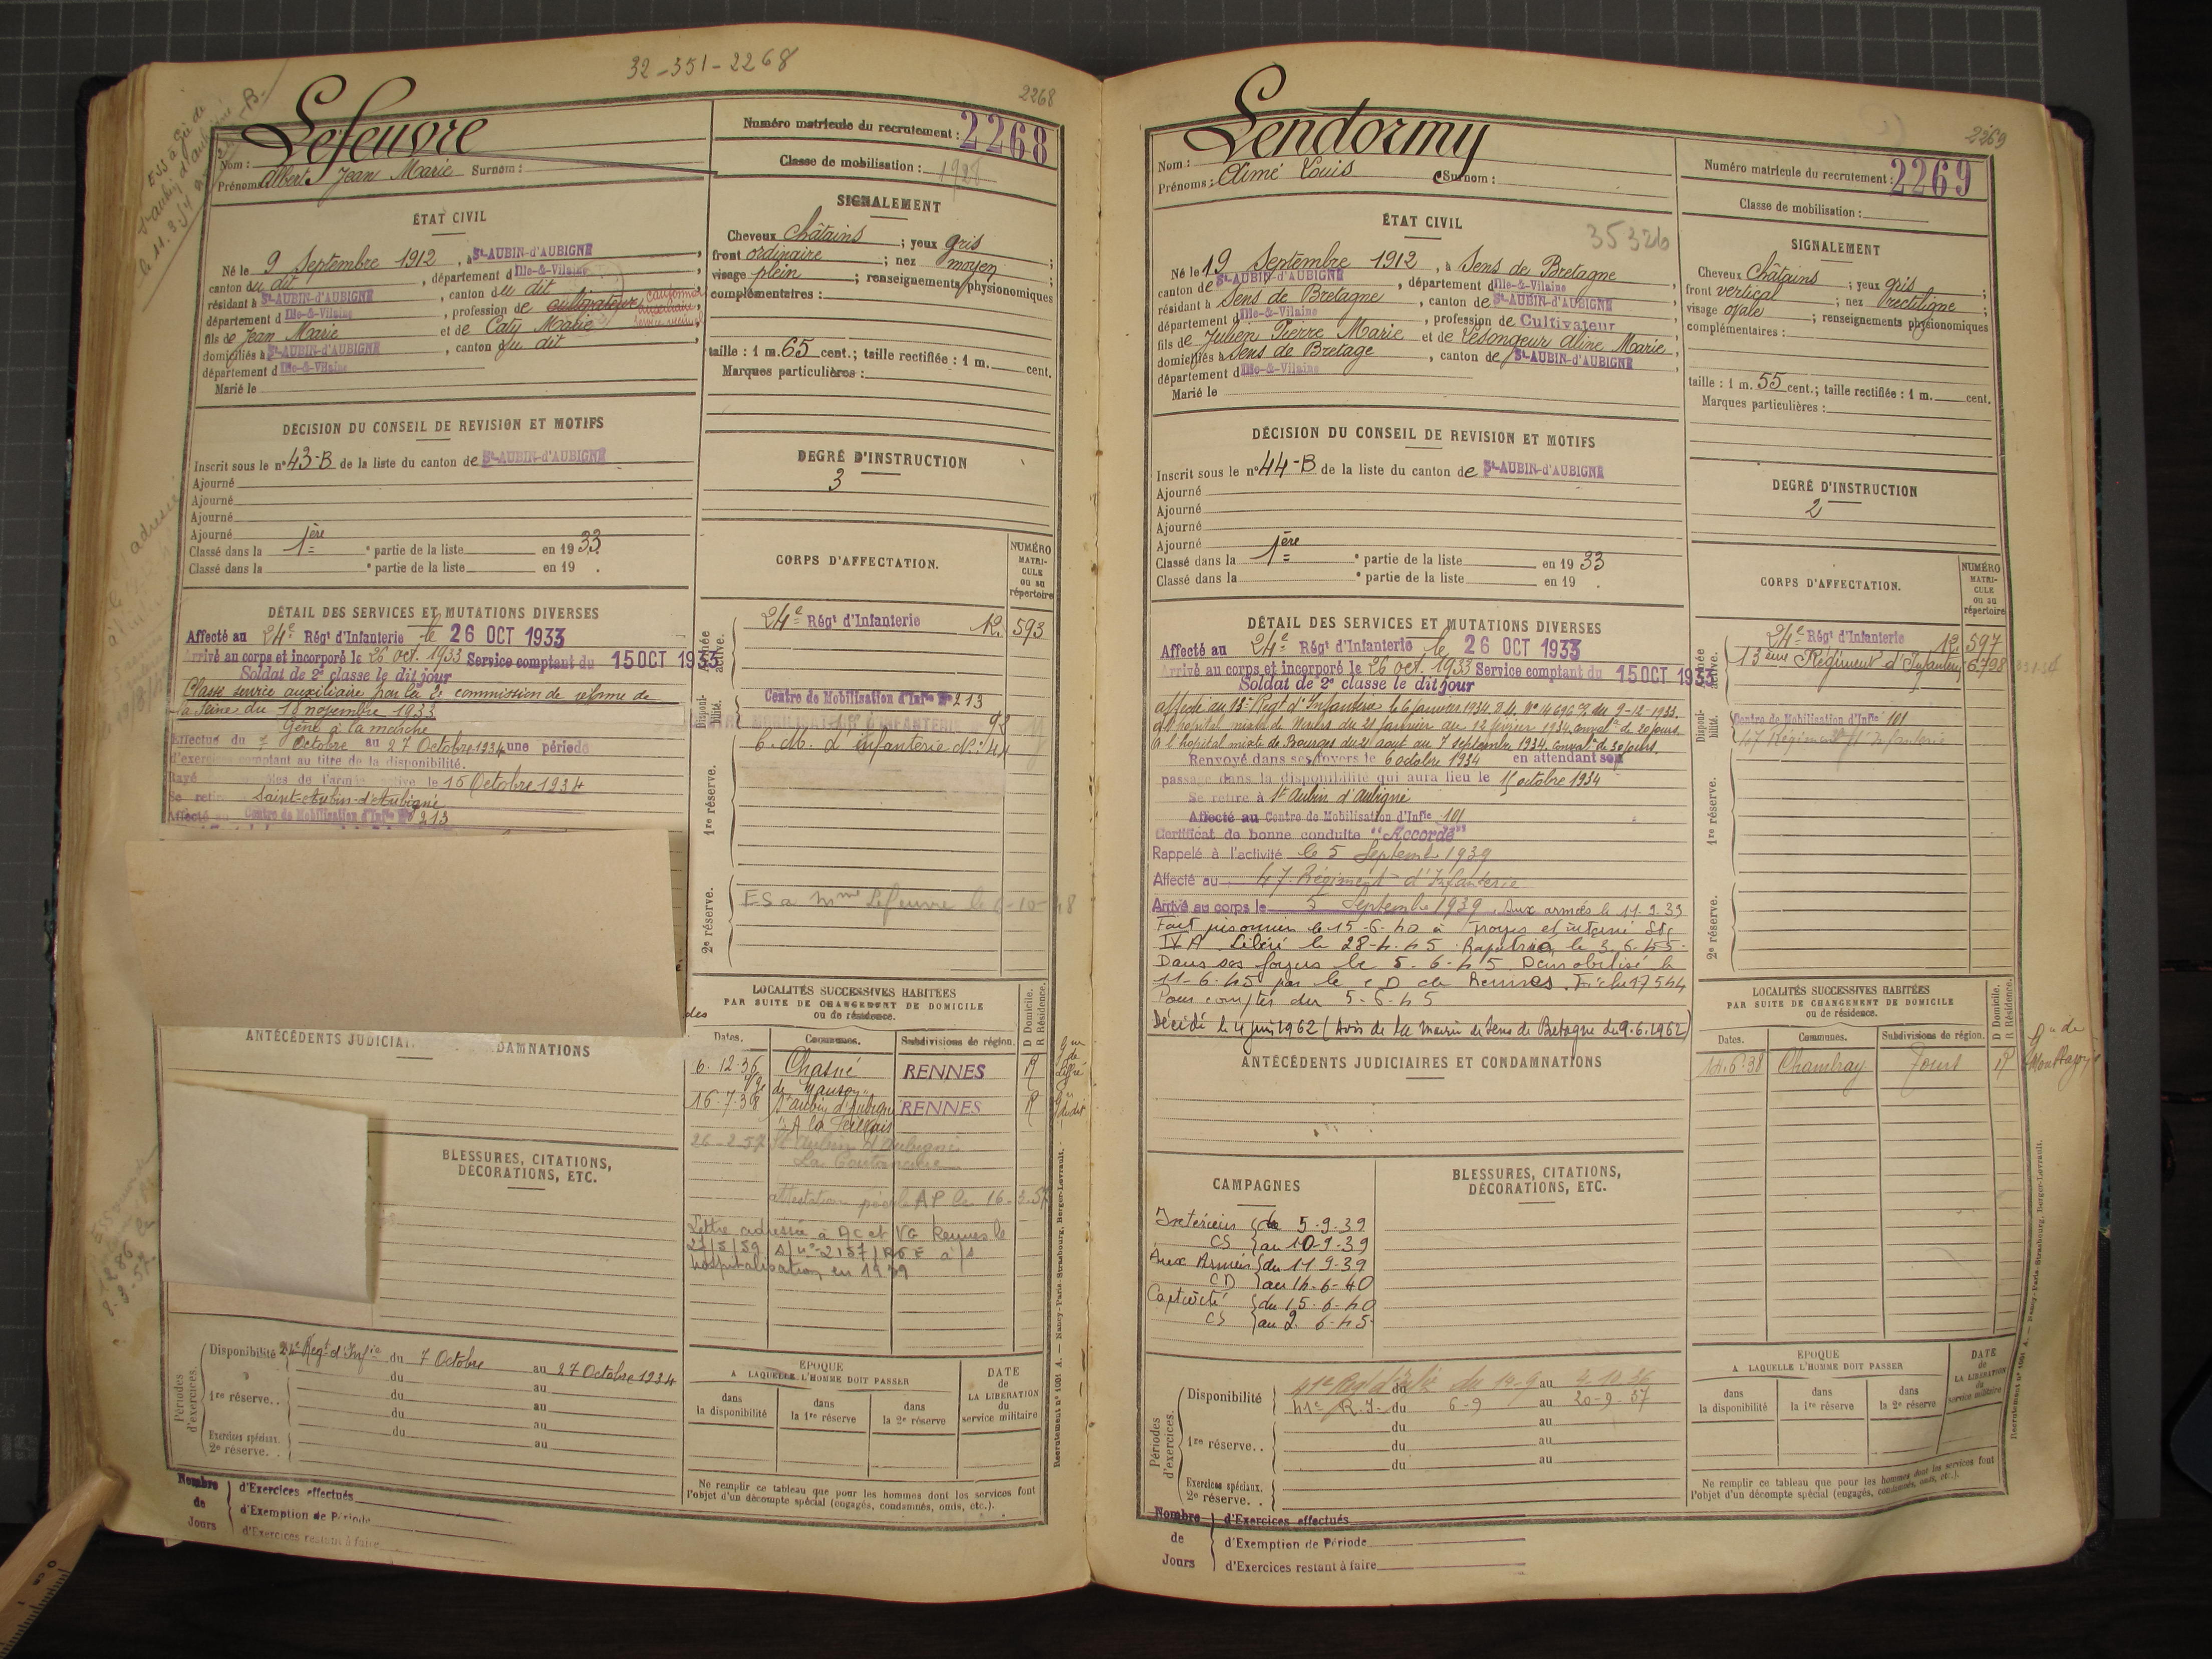 32-351-2268
2268
Lefeuvre
Nom :
Prénoms Albert Jean Marie Surnom :
Numéro matricule du recrutement : 2268
Classe de mobilisation : 1928
ÉTAT CIVIL
Né le 9 Septembre 1912, à St-AUBIN-d'AUBIGNÉ,
canton du dit, département d Ille-&-Vilaine
résidant à St-AUBIN-d'AUBIGNÉ, canton du dit
département d Ille-&-Vilaine, profession de cultivateur
fils de Jean Marie et de Caty Marie
domiciliés à St-AUBIN-d'AUBIGNÉ, canton du dit
département d Ille-&-Vilaine
Marié le
SIGNALEMENT
Cheveux châtains ; yeux gris
front ordinaire ; nez moyen ;
visage plein ; renseignements physionomiques
complémentaires :
taille : 1 m. 65 cent.; taille rectifiée : 1 m. cent.
Marques particulières :
DÉCISION DU CONSEIL DE REVISION ET MOTIFS
Inscrit sous le n° 43-B de la liste du canton de St-AUBIN-d'AUBIGNÉ
Ajourné
Ajourné
Ajourné
Ajourné
Classé dans la 1ère partie de la liste en 1933.
Classé dans la e partie de la liste en 19 .
DEGRÉ D'INSTRUCTION
3
CORPS D'AFFECTATION.
NUMÉRO MATRICULE ou au répertoire
DÉTAIL DES SERVICES ET MUTATIONS DIVERSES
Affecté au 24e Régt d'Infanterie le 26 OCT 1933
Arrivé au corps et incorporé le 26 oct. 1933 Service comptant du 15 OCT 1933
Soldat de 2e classe le dit jour
Classé service auxiliaire par la 2e commission de réforme de
la Seine du 18 novembre 1933
Gêne à la marche
Effectué du 7 Octobre au 27 Octobre 1934 une période
d'exercices comptant au titre de la disponibilité.
Rayé des contrôles de l'armée active le 15 Octobre 1934
Se retire Saint-Aubin-d'Aubigné
Affecté au Centre de Mobilisation d'Infie N° 213
Armée active.
24e Régt d'Infanterie R. 593
Disponibilité.
Centre de Mobilisation d'Infie N° 213
C. M. d'Infanterie N° 44
1re réserve.
2e réserve.
ES a Mme Lefeuvre le 6-10-48
LOCALITÉS SUCCESSIVES HABITÉES
PAR SUITE DE CHANGEMENT DE DOMICILE
ou de résidence.
Dates. Communes. Subdivisions de région. D Domicile. R Résidence.
6.12.36 Chasné RENNES R
16-7-38 St aubin d'Aubigné RENNES R
26-2-57 St Aubin d'Aubigné
attestation AP le 16-3-57
Lettre adressée à AC et VG Rennes le
27/5/59 s/n° 2157/RSE a/s
hospitalisation en 1939
ANTÉCÉDENTS JUDICIAI DAMNATIONS
BLESSURES, CITATIONS,
DÉCORATIONS, ETC.
Périodes d'exercices.
Disponibilité 24e Régt d'Infie du 7 Octobre au 27 Octobre 1934
du au
1re réserve.. du au
du au
du au
Exercices spéciaux. 2e réserve. . au
ÉPOQUE
A LAQUELLE L'HOMME DOIT PASSER
dans la disponibilité
dans la 1re réserve
dans la 2e réserve
DATE de LA LIBÉRATION du service militaire
Ne remplir ce tableau que pour les hommes dont les services font
l'objet d'un décompte spécial (engagés, condamnés, omis, etc.).
Nombre de Jours
d'Exercices effectués
d'Exemption de Période
d'Exercices restant à faire
Recrutement n° 1091 A. — Nancy-Paris-Strasbourg, Berger-Levrault.
2269
Lendormy
Nom :
Prénoms : Aimé Louis Surnom :
Numéro matricule du recrutement : 2269
Classe de mobilisation :
ÉTAT CIVIL
35326
Né le 19 Septembre 1912, à Sens de Bretagne
canton de St-AUBIN-d'AUBIGNÉ, département d Ille-&-Vilaine
résidant à Sens de Bretagne, canton de St-AUBIN-d'AUBIGNÉ
département d Ille-&-Vilaine, profession de Cultivateur
fils de Julien Pierre Marie et de Lesongeur Aline Marie
domiciliés à Sens de Bretage, canton de St-AUBIN-d'AUBIGNÉ
département d Ille-&-Vilaine
Marié le
SIGNALEMENT
Cheveux Châtains ; yeux gris
front vertical ; nez rectiligne ;
visage ovale ; renseignements physionomiques
complémentaires :
taille : 1 m. 55 cent.; taille rectifiée : 1 m. cent.
Marques particulières :
DÉCISION DU CONSEIL DE REVISION ET MOTIFS
Inscrit sous le n° 44-B de la liste du canton de St-AUBIN-d'AUBIGNÉ
Ajourné
Ajourné
Ajourné
Ajourné
Classé dans la 1ère partie de la liste en 1933
Classé dans la e partie de la liste en 19 .
DEGRÉ D'INSTRUCTION
2
CORPS D'AFFECTATION.
NUMÉRO MATRICULE ou au répertoire
DÉTAIL DES SERVICES ET MUTATIONS DIVERSES
Affecté au 24e Régt d'Infanterie le 26 OCT 1933
Arrivé au corps et incorporé le 26 oct. 1933 Service comptant du 15 OCT 1933
Soldat de 2e classe le dit jour
Affecté au 13e Régt d'Infanterie le 6 janvier 1934 D.M. N° 14696 du 9-12-1933.
à l'hôpital mixte de Nevers du 21 Janvier au 12 février 1934, conval. de 20 jours.
à l'hôpital mixte de Bourges du 21 aout au 7 septembre 1934. conval. de 30 jours.
Renvoyé dans ses foyers le 6 octobre 1934 en attendant son
passage dans la disponibilité qui aura lieu le 15 octobre 1934
Se retire à St Aubin d'Aubigné
Affecté au Centre de Mobilisation d'Infie 101
Certificat de bonne conduite "Accordé"
Rappelé à l'activité le 5 Septembre 1939
Affecté au 47 Régiment d'Infanterie
Arrivé au corps le 5 Septembre 1939. Aux armées le 11.9.39
Fait prisonnier le 15-6-40 à Troyes et interné Stg
IV A. Libéré le 28-4-45. Rapatrié le 3-6-45.
Dans ses foyers le 5-6-45. Démobilisé le
11-6-45 par le CD de Rennes. Fiche 27544
Pour compter du 5-6-45
Décédé le 4 juin 1962 (Avis de la Mairie de Sens de Bretagne du 9.6.1962)
Armée active.
24e Régt d'Infanterie R. 597
13ème Régiment d'Infanterie 6728
Disponibilité.
Centre de Mobilisation d'Infie 101
47 Régiment d'Infanterie
1re réserve.
2e réserve.
LOCALITÉS SUCCESSIVES HABITÉES
PAR SUITE DE CHANGEMENT DE DOMICILE
ou de résidence.
Dates. Communes. Subdivisions de région. D Domicile. R Résidence.
14.6.38 Chambray Tours R
ANTÉCÉDENTS JUDICIAIRES ET CONDAMNATIONS
CAMPAGNES
Intérieur de 5-9-39
CS au 10-9-39
Aux Armées du 11-9-39
CD au 14-6-40
Captivité du 15-6-40
CS au 2-6-45
BLESSURES, CITATIONS,
DÉCORATIONS, ETC.
Périodes d'exercices.
Disponibilité 41e Régt d'Infie du 14-9 au 4.10.36
41e R.I. du 6-9 au 20-9-37
du au
1re réserve.. du au
du au
Exercices spéciaux. 2e réserve. .
ÉPOQUE
A LAQUELLE L'HOMME DOIT PASSER
dans la disponibilité
dans la 1re réserve
dans la 2e réserve
DATE de LA LIBÉRATION du service militaire
Ne remplir ce tableau que pour les hommes dont les services font
l'objet d'un décompte spécial (engagés, condamnés, omis, etc.).
Nombre de Jours
d'Exercices effectués
d'Exemption de Période
d'Exercices restant à faire
Recrutement n° 1091 A. — Nancy-Paris-Strasbourg, Berger-Levrault.